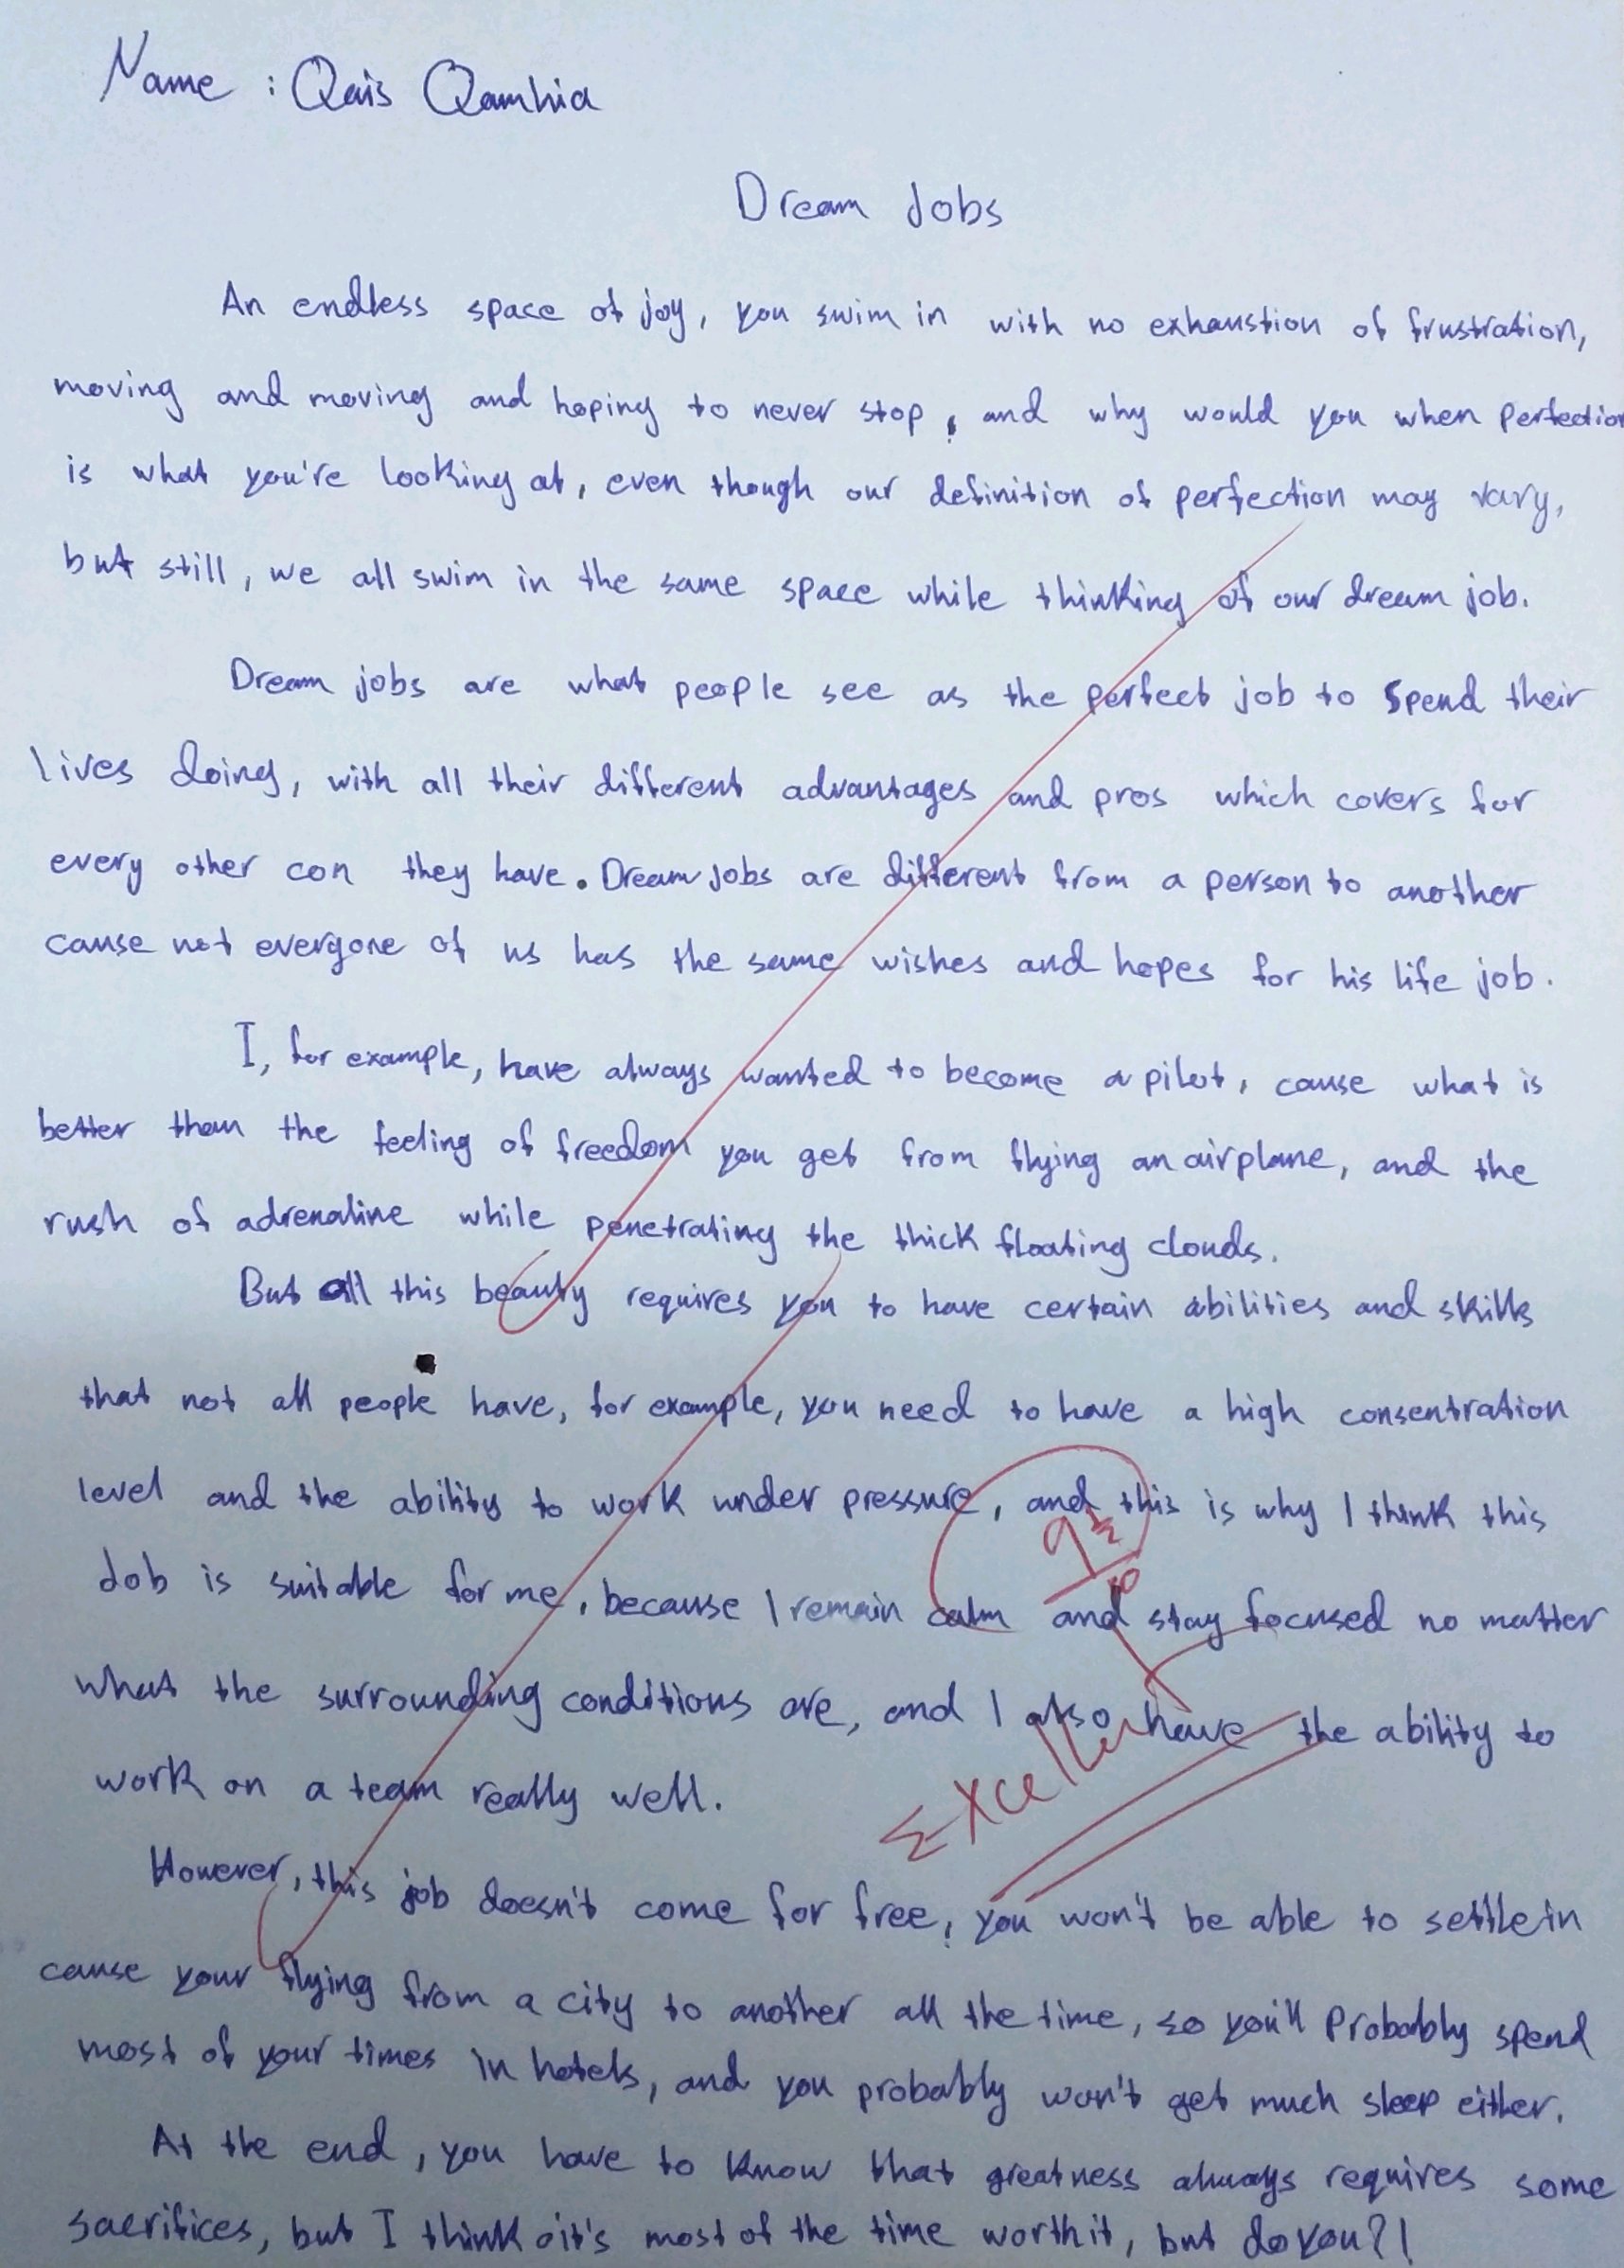 Name : Qais Qamhia
Dream Jobs
An endless space of joy, you swim in with no exhaustion of frustration,
moving and moving and hoping to never stop, and why would you when perfection
is what you're looking at, even though our definition of perfection may vary,
but still, we all swim in the same space while thinking of our dream job.
Dream jobs are what people see as the perfect job to spend their
lives doing, with all their different advantages and pros which covers for
every other con they have. Dream jobs are different from a person to another
cause not everyone of us has the same wishes and hopes for his life job.
I, for example, have always wanted to become a pilot, cause what is
better than the feeling of freedom you get from flying an airplane, and the
rush of adrenaline while penetrating the thick floating clouds.
But all this beauty requires you to have certain abilities and skills
that not all people have, for example, you need to have a high consentration
level and the ability to work under pressure, and this is why I think this
Job is suitable for me, because I remain calm and stay focused no matter
what the surrounding conditions are, and I also have the ability to
work on a team really well.
9½/10
Excellent
However, this job doesn't come for free, you won't be able to settle in
cause your flying from a city to another all the time, so you'll Probably spend
most of your times in hotels, and you probably won't get much sleep either.
At the end, you have to know that greatness always requires some
sacrifices, but I think it's most of the time worth it, but do you?!